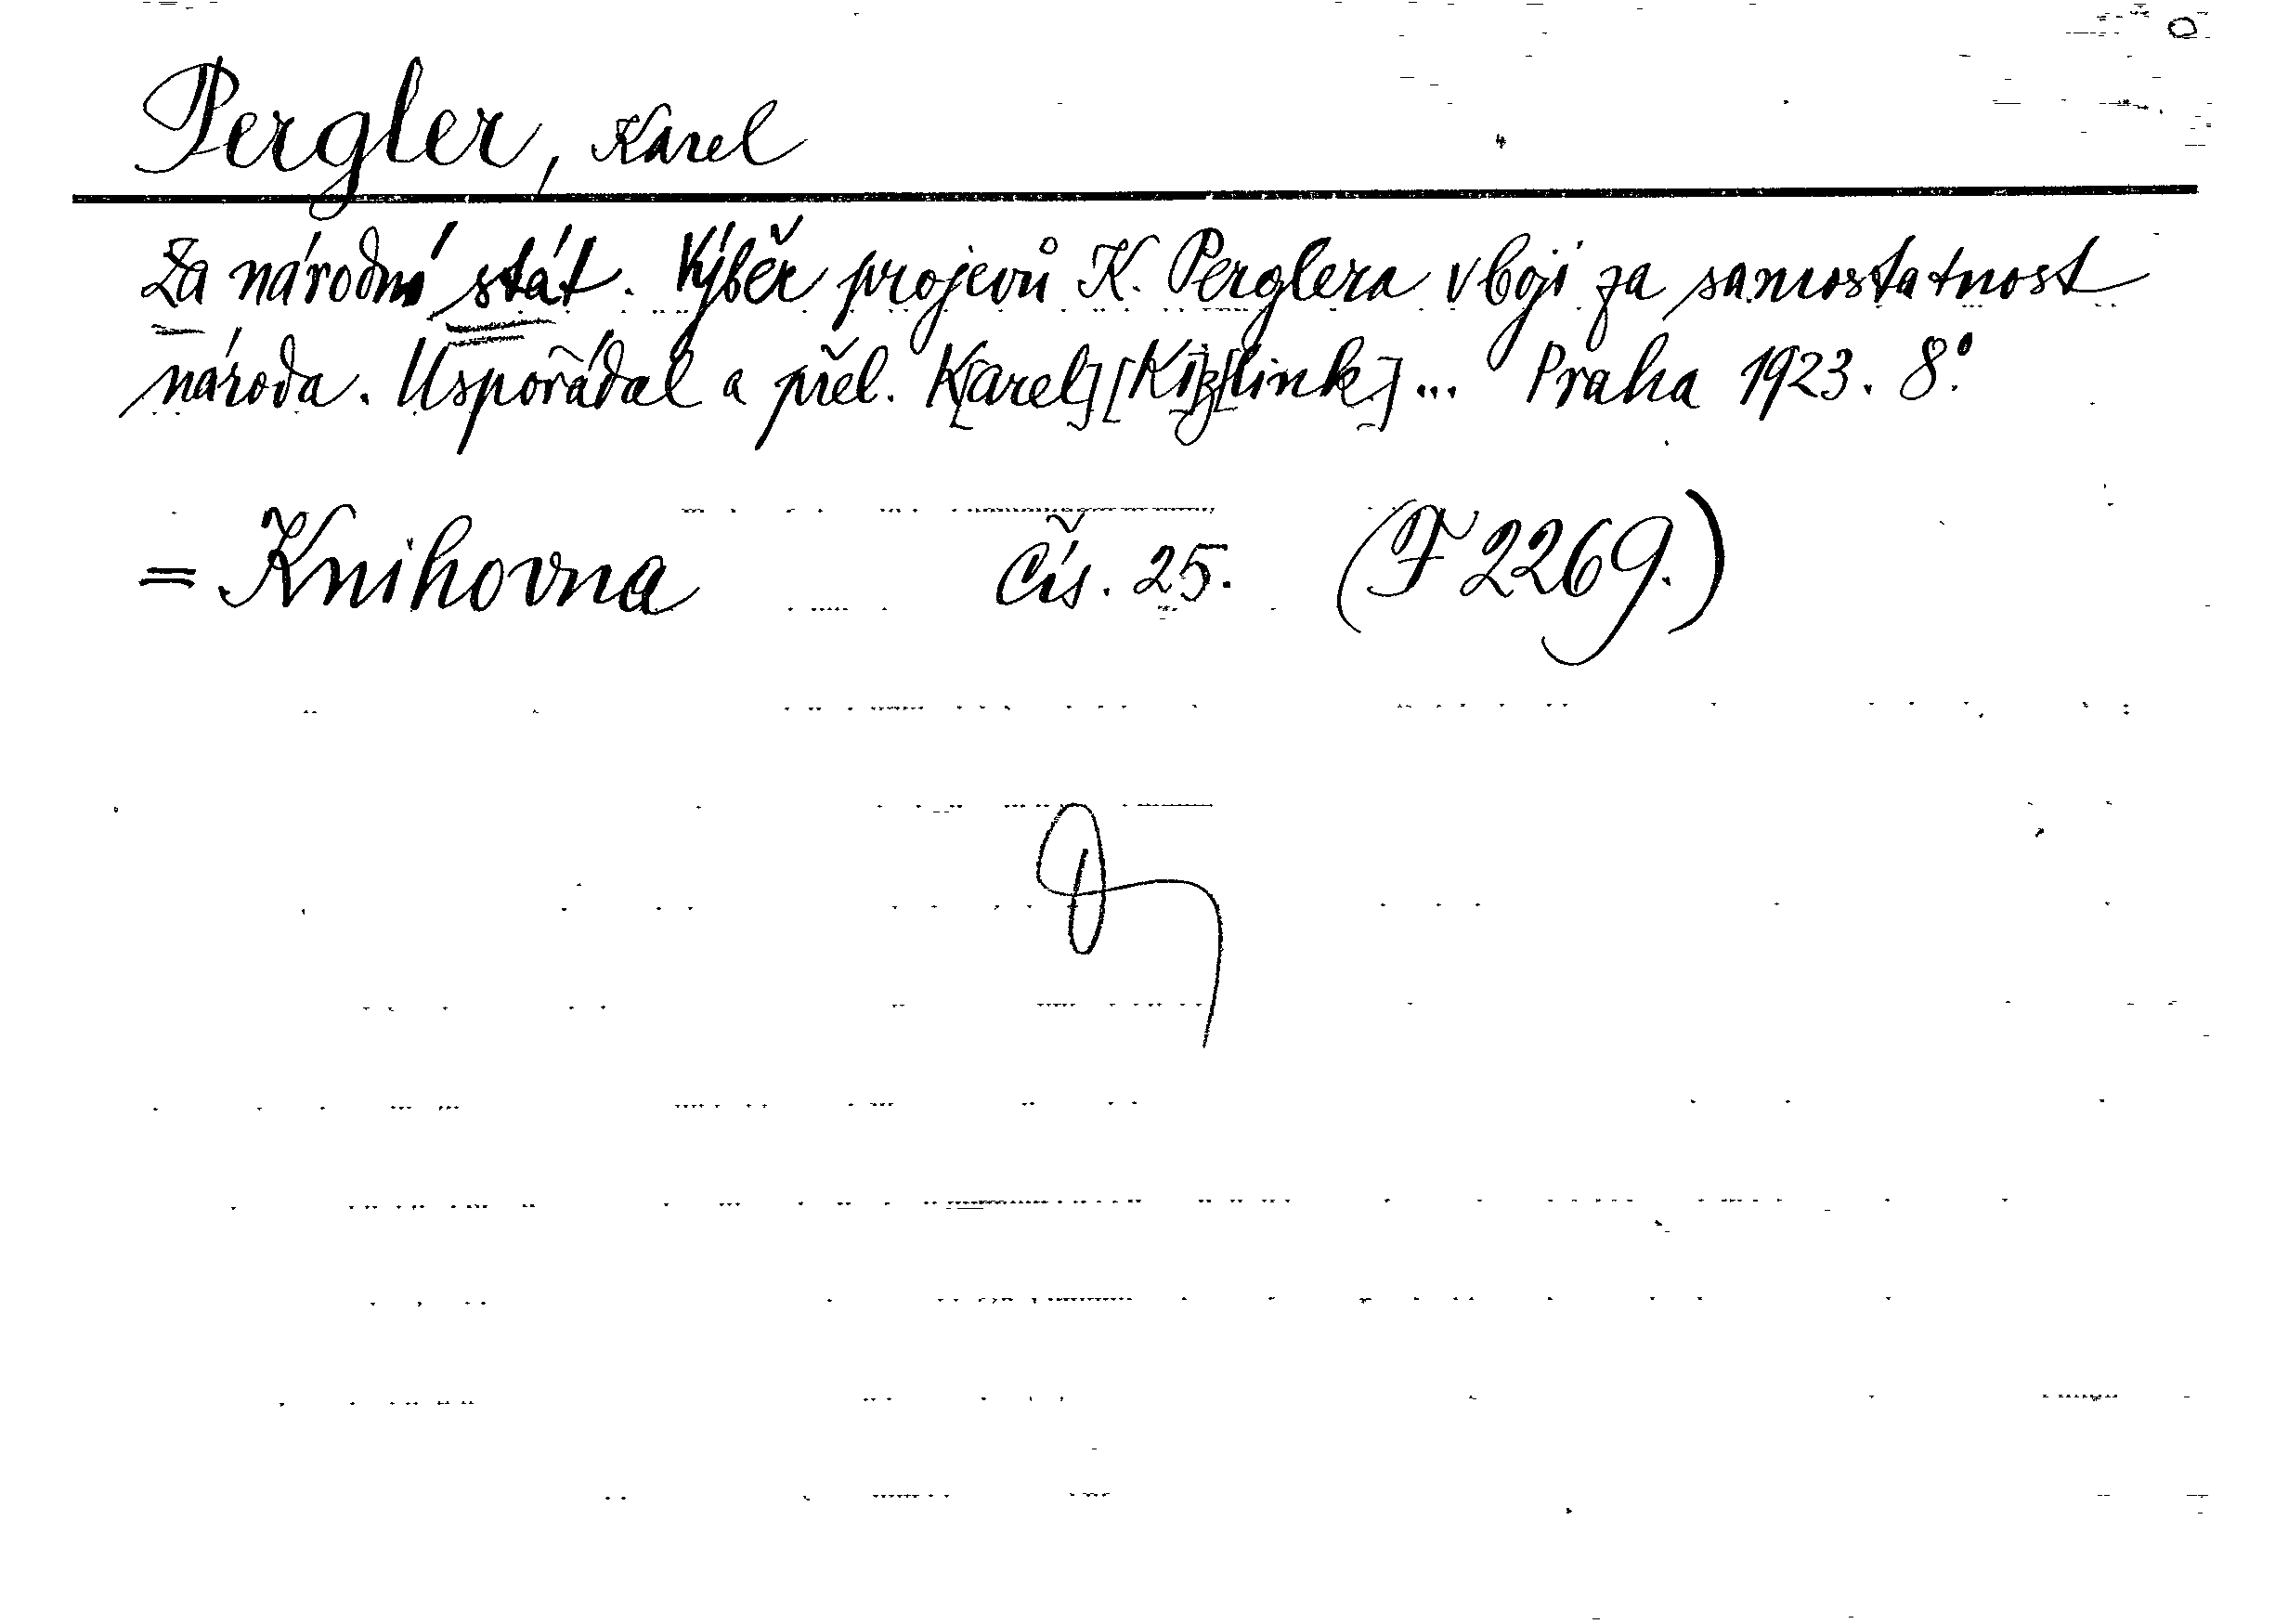 Pergler, Karel
Za národní stát. Výběr projevů K. Perglera v boji za samostatnost
národa. Uspořádal a přel. K[arel] [Ki]z[link]... Praha 1923. 8°.
= Knihovna čís. 25. (F 2269.)